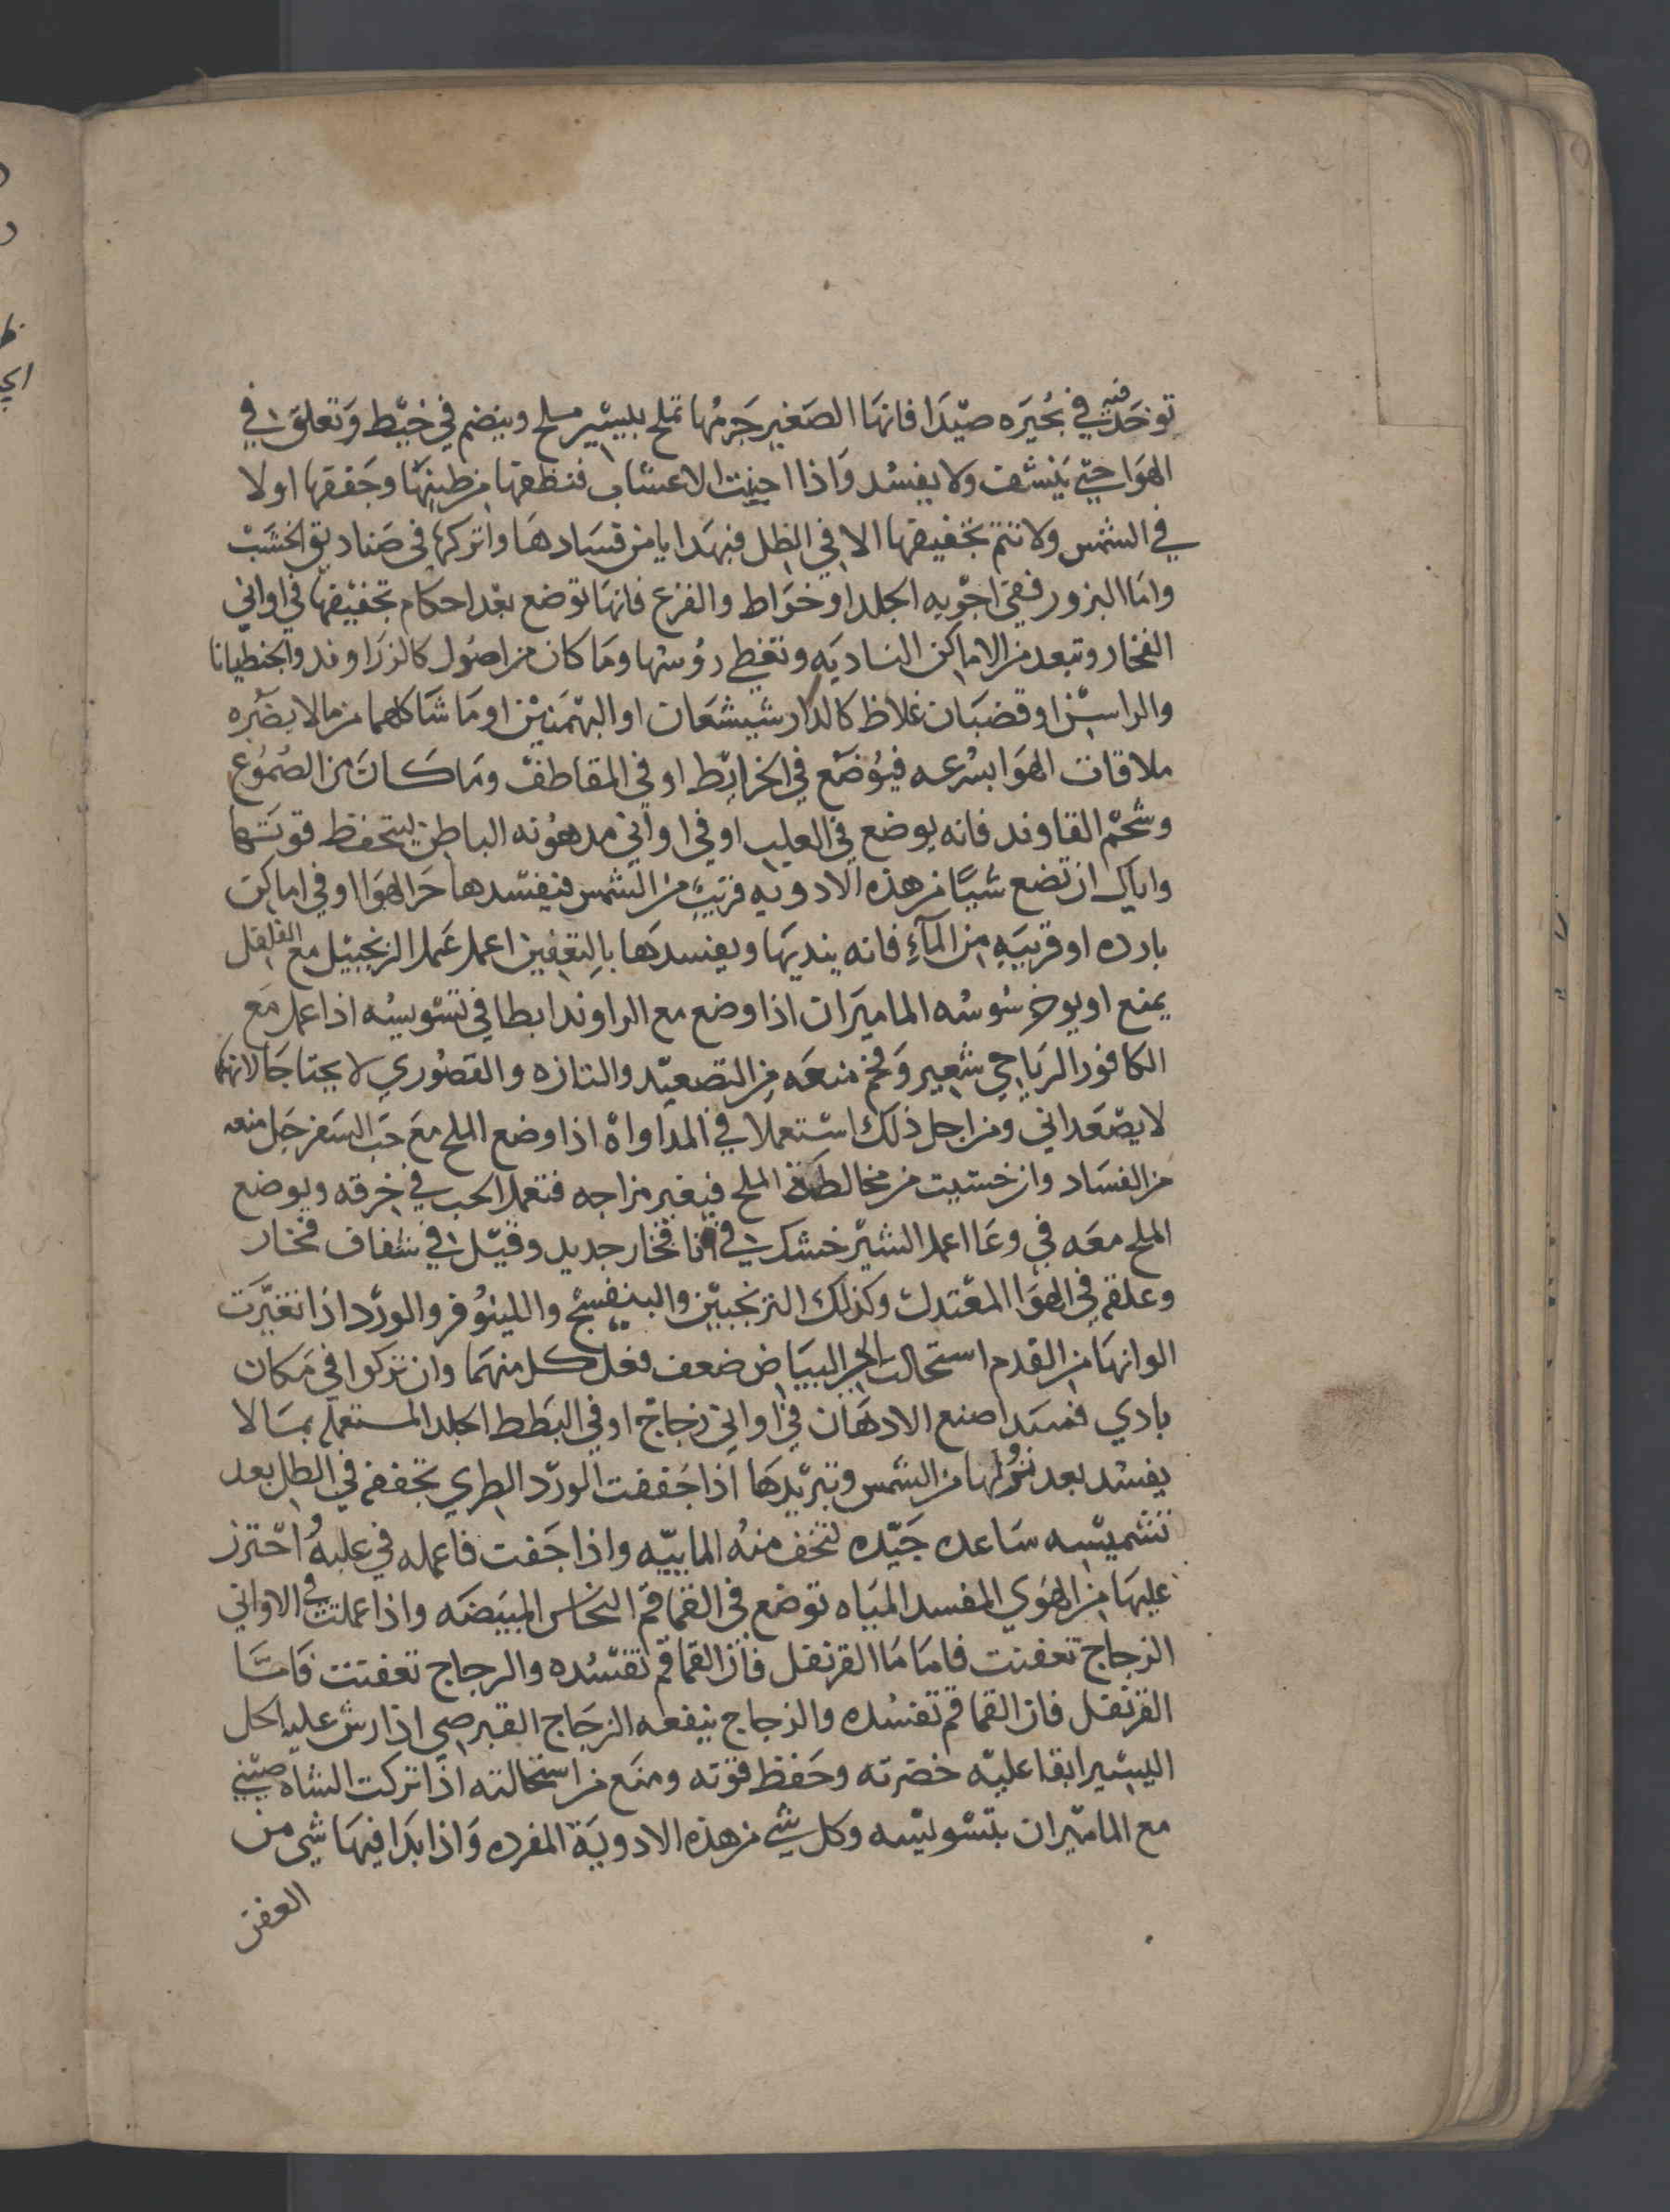 توخد فيه في بحيره صيدا فانها الصغير جرمها تملح بيسير ملح وينضم في خيط وتعلق في
الهوا حتي ينشف ولا يفسد واذا اجنيت الاعشاب فنظفها من طينها وجففها اولا
في الشمس ولا تتم تجفيفها الا في الظل فبهدا يامن فسادها واتركها في صناديق الخشب
واما البزور ففي اجوبه الجلد او خواط والفزع فانها توضع بعد احكام تجفيفها في اواني
الفخار وتبعد من الاماكن الناديه وتغطي روسها وما كان من اصول كالزراوند والجنطيانا
والراسن او قضبان غلاظ كالدار شيشعان او البهمنين او ما شاكلهما من مالا يضره
ملاقات الهوا بسرعه فيوضع في الخرايط او في المقاطف وما كان من الصموغ
وشحم القاوند فانه يوضع في العلب او في اواني مدهونه الباطن ليتحفظ قوتهما
واياك ان تضع شيا من هذه الادويه قريب من الشمس فيفسدها حر الهوا او في اماكن
بارده او قريبه من المآء فانه ينديها ويفسدها بالتعفين اعمل عمل الزنجبيل مع الفلفل
يمنع او يوخر سوسه الماميران اذا وضع مع الراوند ابطا في تسويسه اذا عمل مع
الكافور الرياحي شعير وفحم منعه من التصعيد والتازه والقصوري لا يحتاجا لانهما
لا يصعداني ومن اجل ذلك استعملا في المداواه اذا وضع الملح مع حب السفرجل منعه
من الفساد وان خشيت من مخالطة الملح فيغير مزاجه فتعمل الحب في خرقه ويوضع
الملح معه في وعا اعمل الشير خشك في انا فخار جديد وقيل في شقاف فخار
وعلقه في الهوا المعتدل وكذلك الترنجبين والبنفسج واللينوفر والورد اذا تغيرت
الوانها من القدم استحالت الي البياض ضعف فعل كل منهما وان تركوا في مكان
بادي فسد اصنع الادهان في اواني زجاج او في البطط الجلد المستعمله بما لا
يفسد بعد نزولها من الشمس وتبريدها اذا جففت الورد الطري تجففه في الظل بعد
تشميسه ساعه جيده لتخف منه الماييه واذا جفت فاعمله في علبه احترز
عليها من الهوي المفسد المياه توضع في القماقم النحاس المبيضه واذا عملت في الاواني
الزجاج تعفنت فاما ما القرنفل فان القماقم تفسده والزجاج تعفنت فاما
القرنفل فان القماقم تفسده والزجاج ينفعه الزجاج القبرصي اذا رش عليه الخل
اليسير ابقا عليه خضرته وحفظ قوته ومنع من استحالته اذا تركت الشاه صيني
مع الماميران بتسويسه وكل شي من هذه الادوية المفرده واذا بدا فيها شي من
العفن